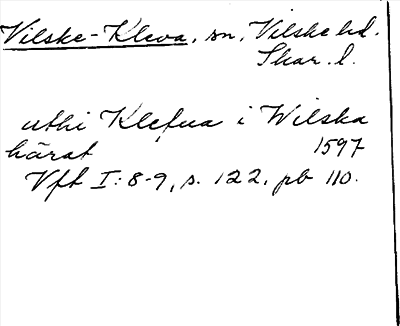 Vilske-Kleva, sn, Vilske hd.
Skar. l.
uthi Klefua i Wilska
härat 1597
Vft I: 8-9, s. 122, pb 110.